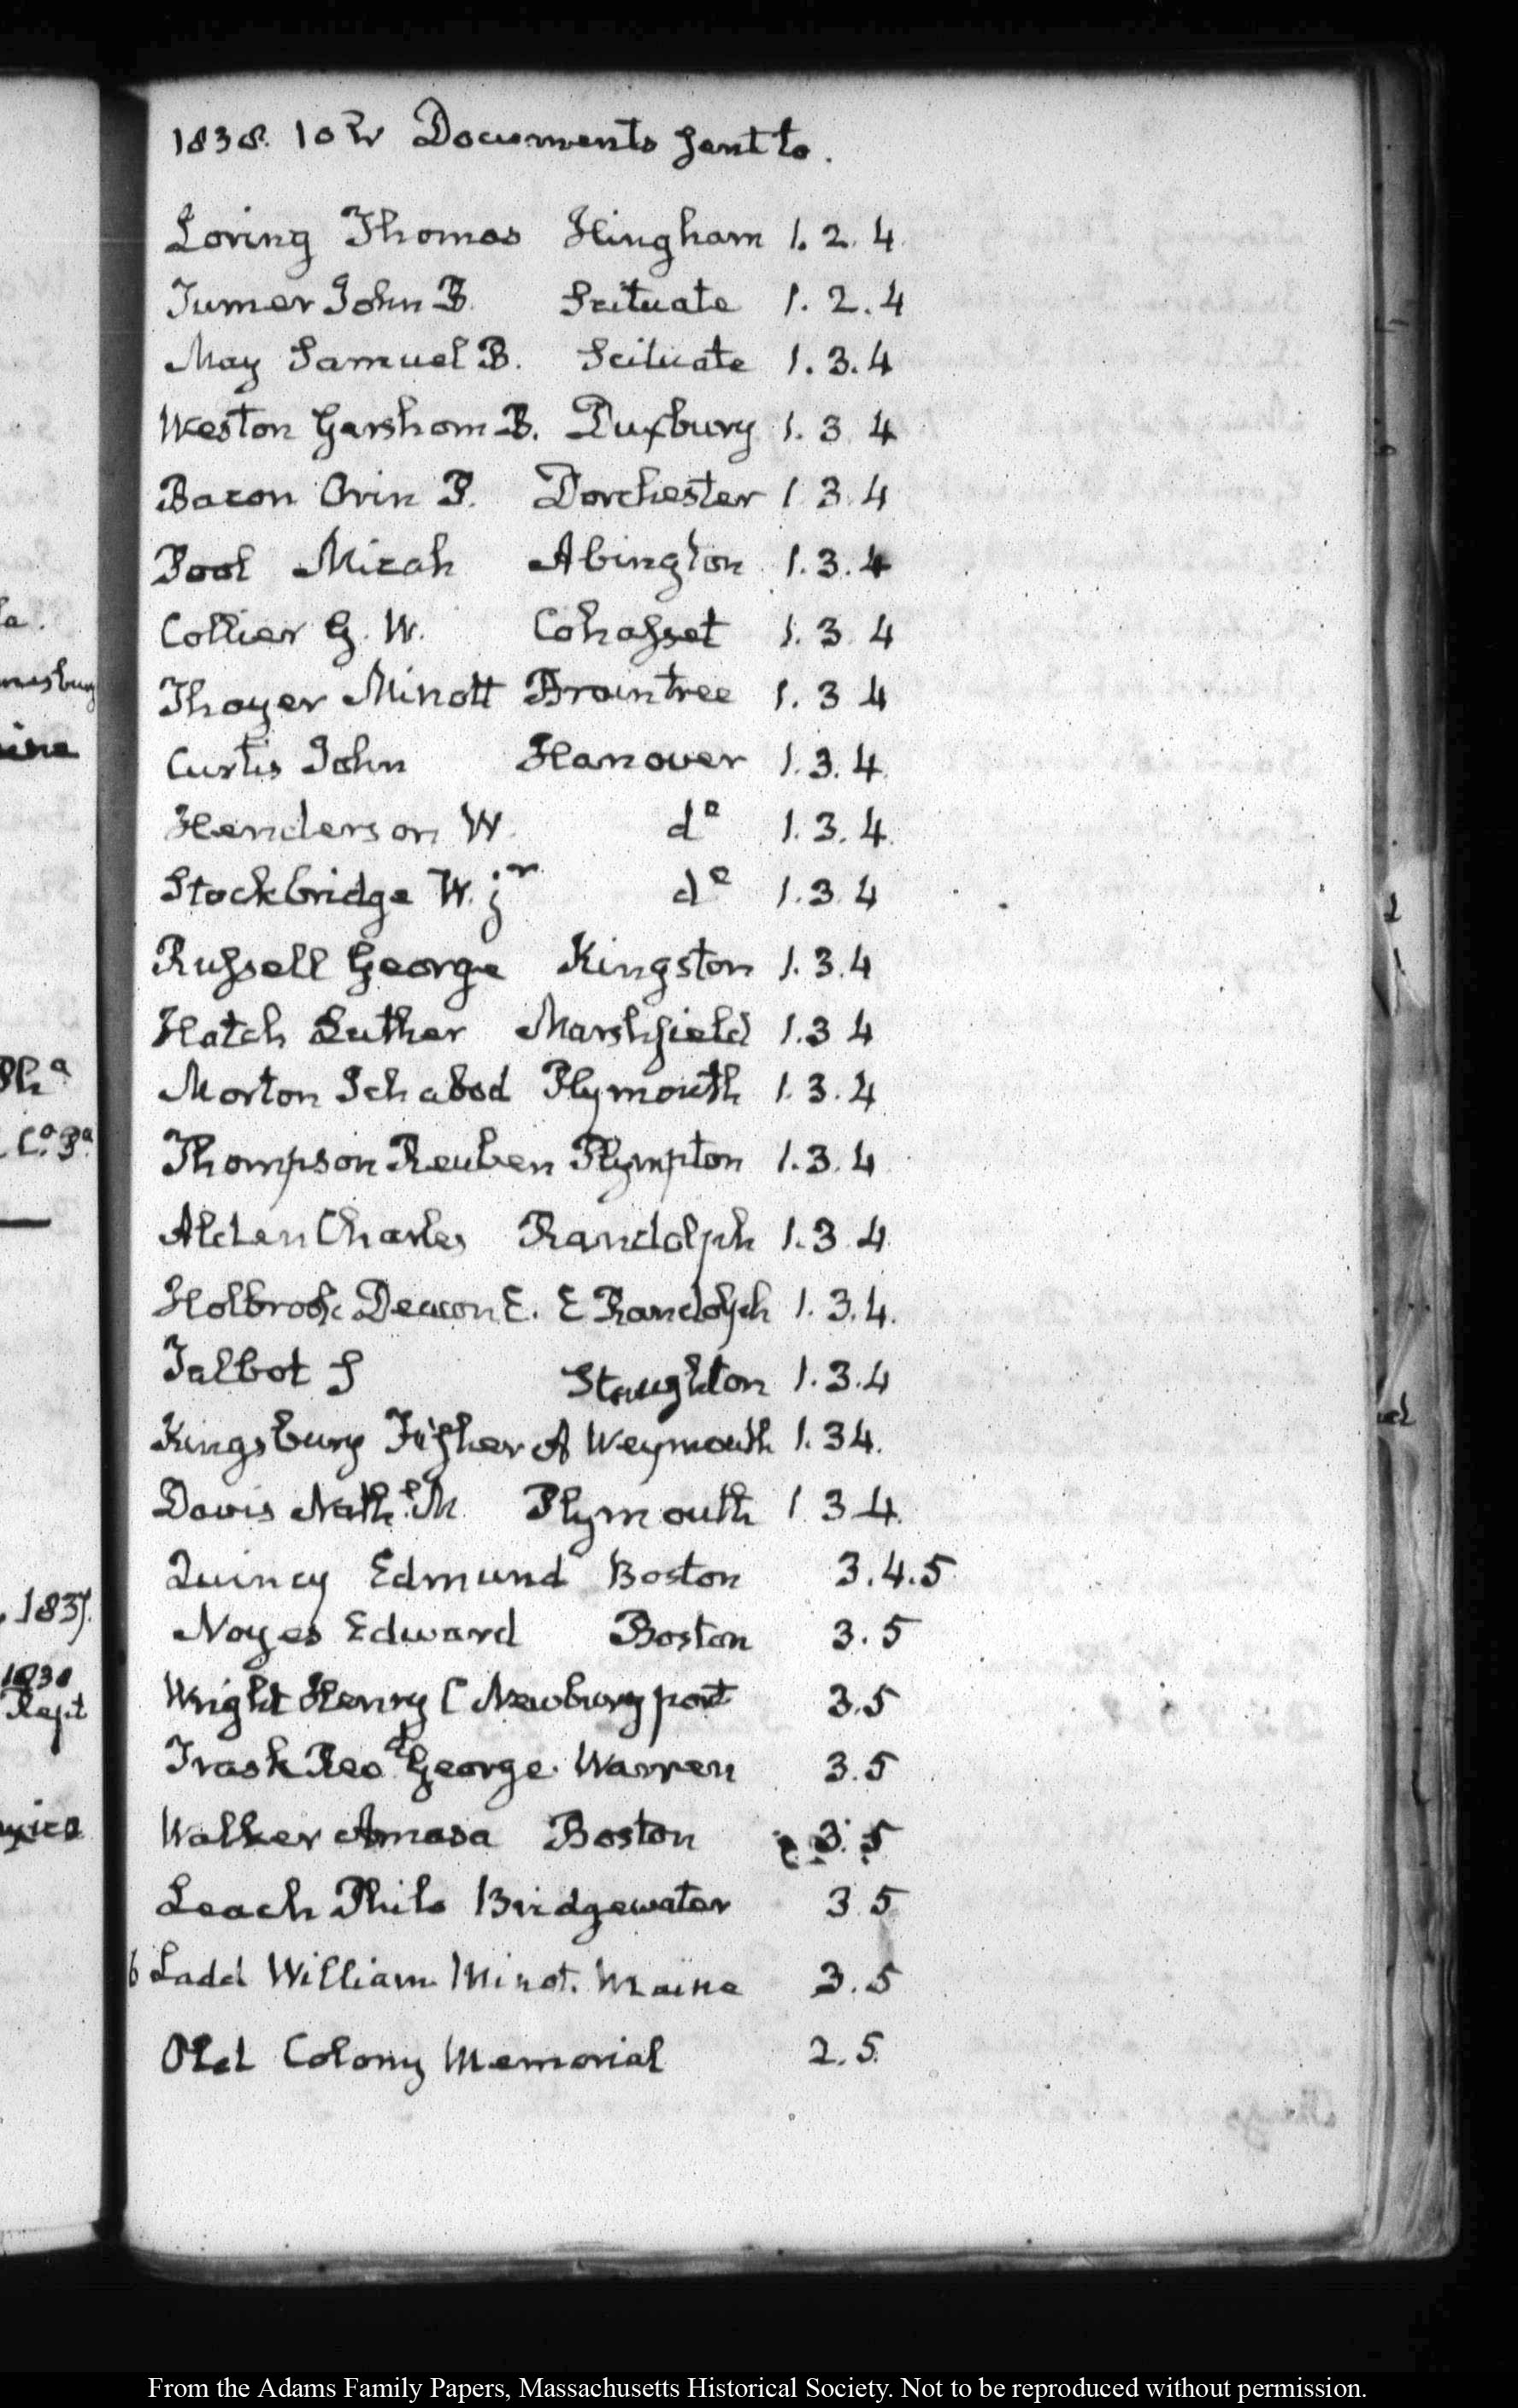 1838. 10 IV Documents sent to.
Loring Thomas Hingham 1. 2. 4.
Turner John B. Scituate 1. 2. 4
May Samuel B. Scituate 1. 3. 4
Weston Gershom B. Duxbury 1. 3 4
Bacon Orin P. Dorchester 1 3. 4
Pool Micah Abington 1. 3. 4
Collier G. W. Cohasset 1. 3. 4
Thayer Minott Braintree 1. 3 4
Curtis John Hanover 1. 3. 4.
Henderson W. do 1. 3. 4.
Stockbridge W. jr do 1. 3. 4
Russell George Kingston 1. 3. 4
Hatch Luther Marshfield 1. 3 4
Morton Ichabod Plymouth 1. 3. 4
Thompson Reuben Plympton 1. 3. 4
Alden Charles Randolph 1. 3. 4
Holbrook Deacon E. E Randolph 1. 3. 4.
Talbot S Stoughton 1. 3. 4
Kingsbury Fisher A Weymouth 1. 3 4.
Davis Nathl. M. Plymouth 1. 3 4.
Quincy Edmund Boston 3. 4. 5
Noyes Edward Boston 3. 5
Wright Henry C Newburyport 3. 5
Trask Revd George. Warren 3. 5
Walker Amasa Boston 3. 5
Leach Philo Bridgewater 3 5
Ladd William Minot. Maine 3. 5
Old Colony Memorial 2. 5.
From the Adams Family Papers, Massachusetts Historical Society. Not to be reproduced without permission.